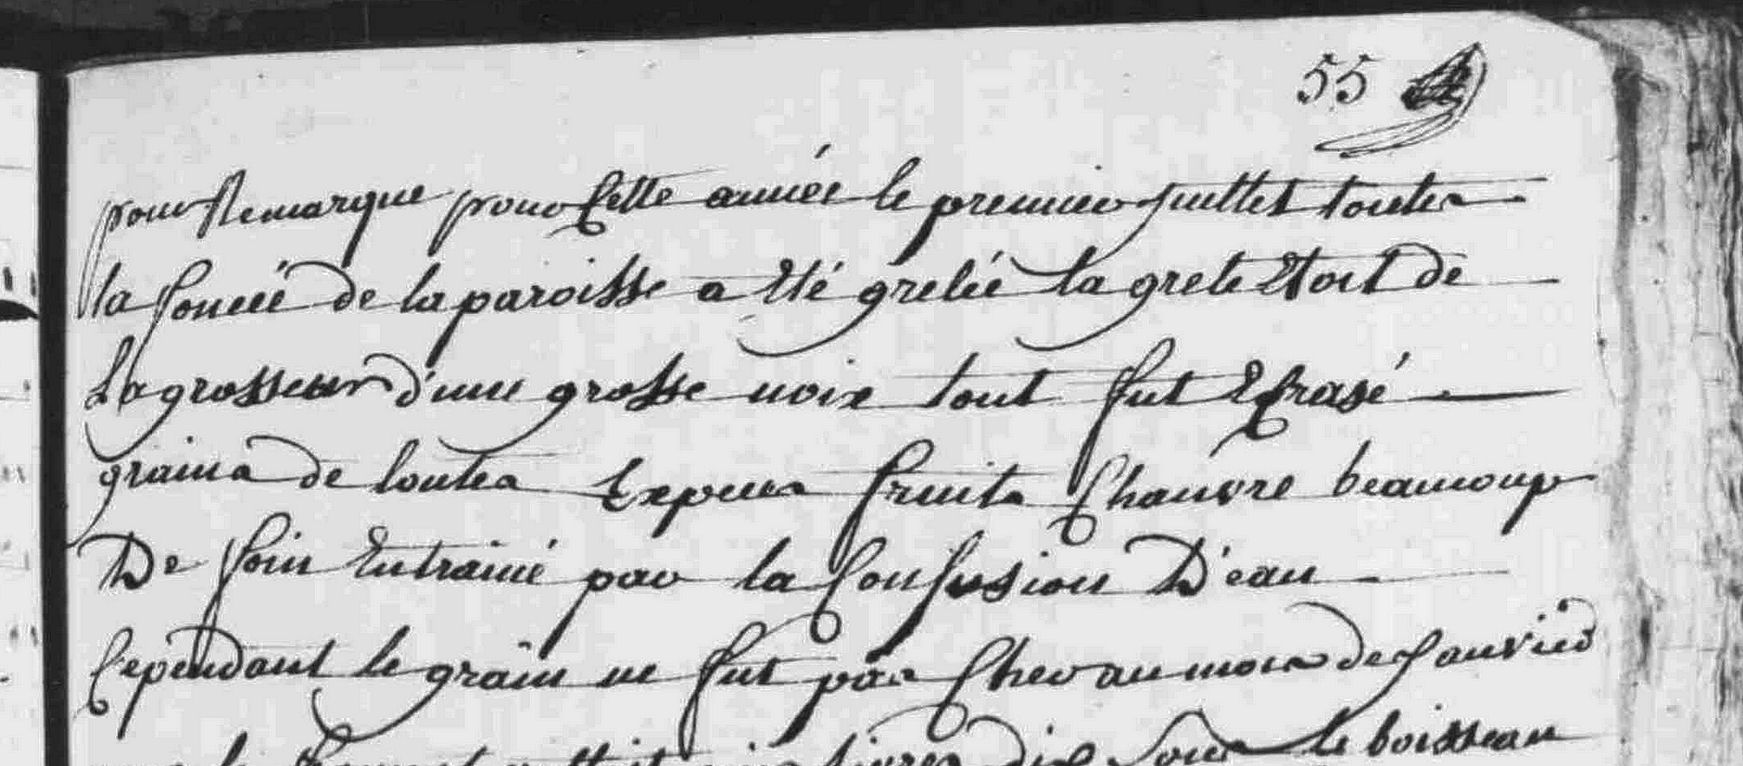 55
pour Remarque pour Cette année le premier juillet toutes
la de la paroisse a Eté grelée la grele Etoit de
La grosseur d'une grosse noix tout fut Ecrasé
grains de toutes Especes fruits Chanvre beaucoup
De foin Entrainé par la Confusion D'eau
Cependant le grain ne fut pas Cher au mois de Janvier
livres dix sous le boisseau